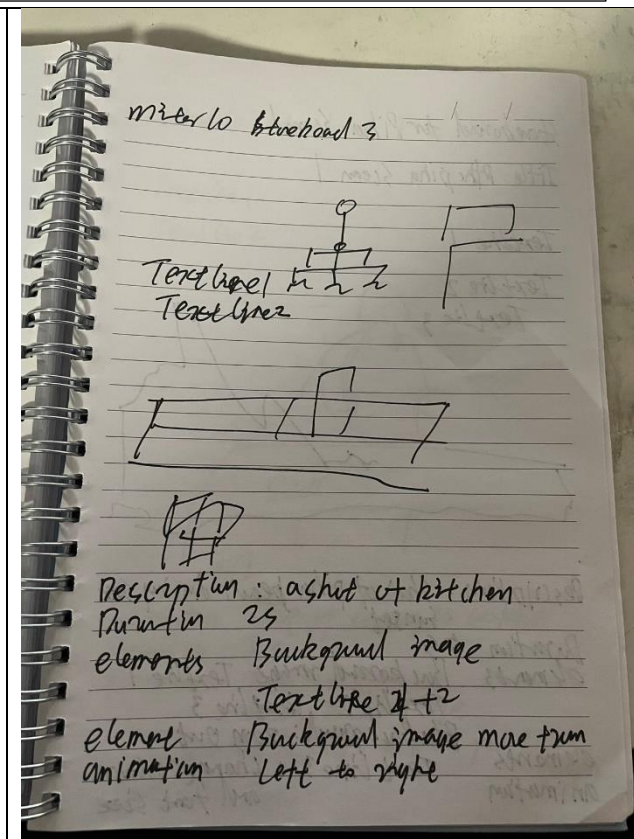 storeboard 3
Text line 1
Text line 2
Description : a shot of kitchen
Duration 2s
elements Background image
Text line 1 +2
element Background image move from
animation Left to right